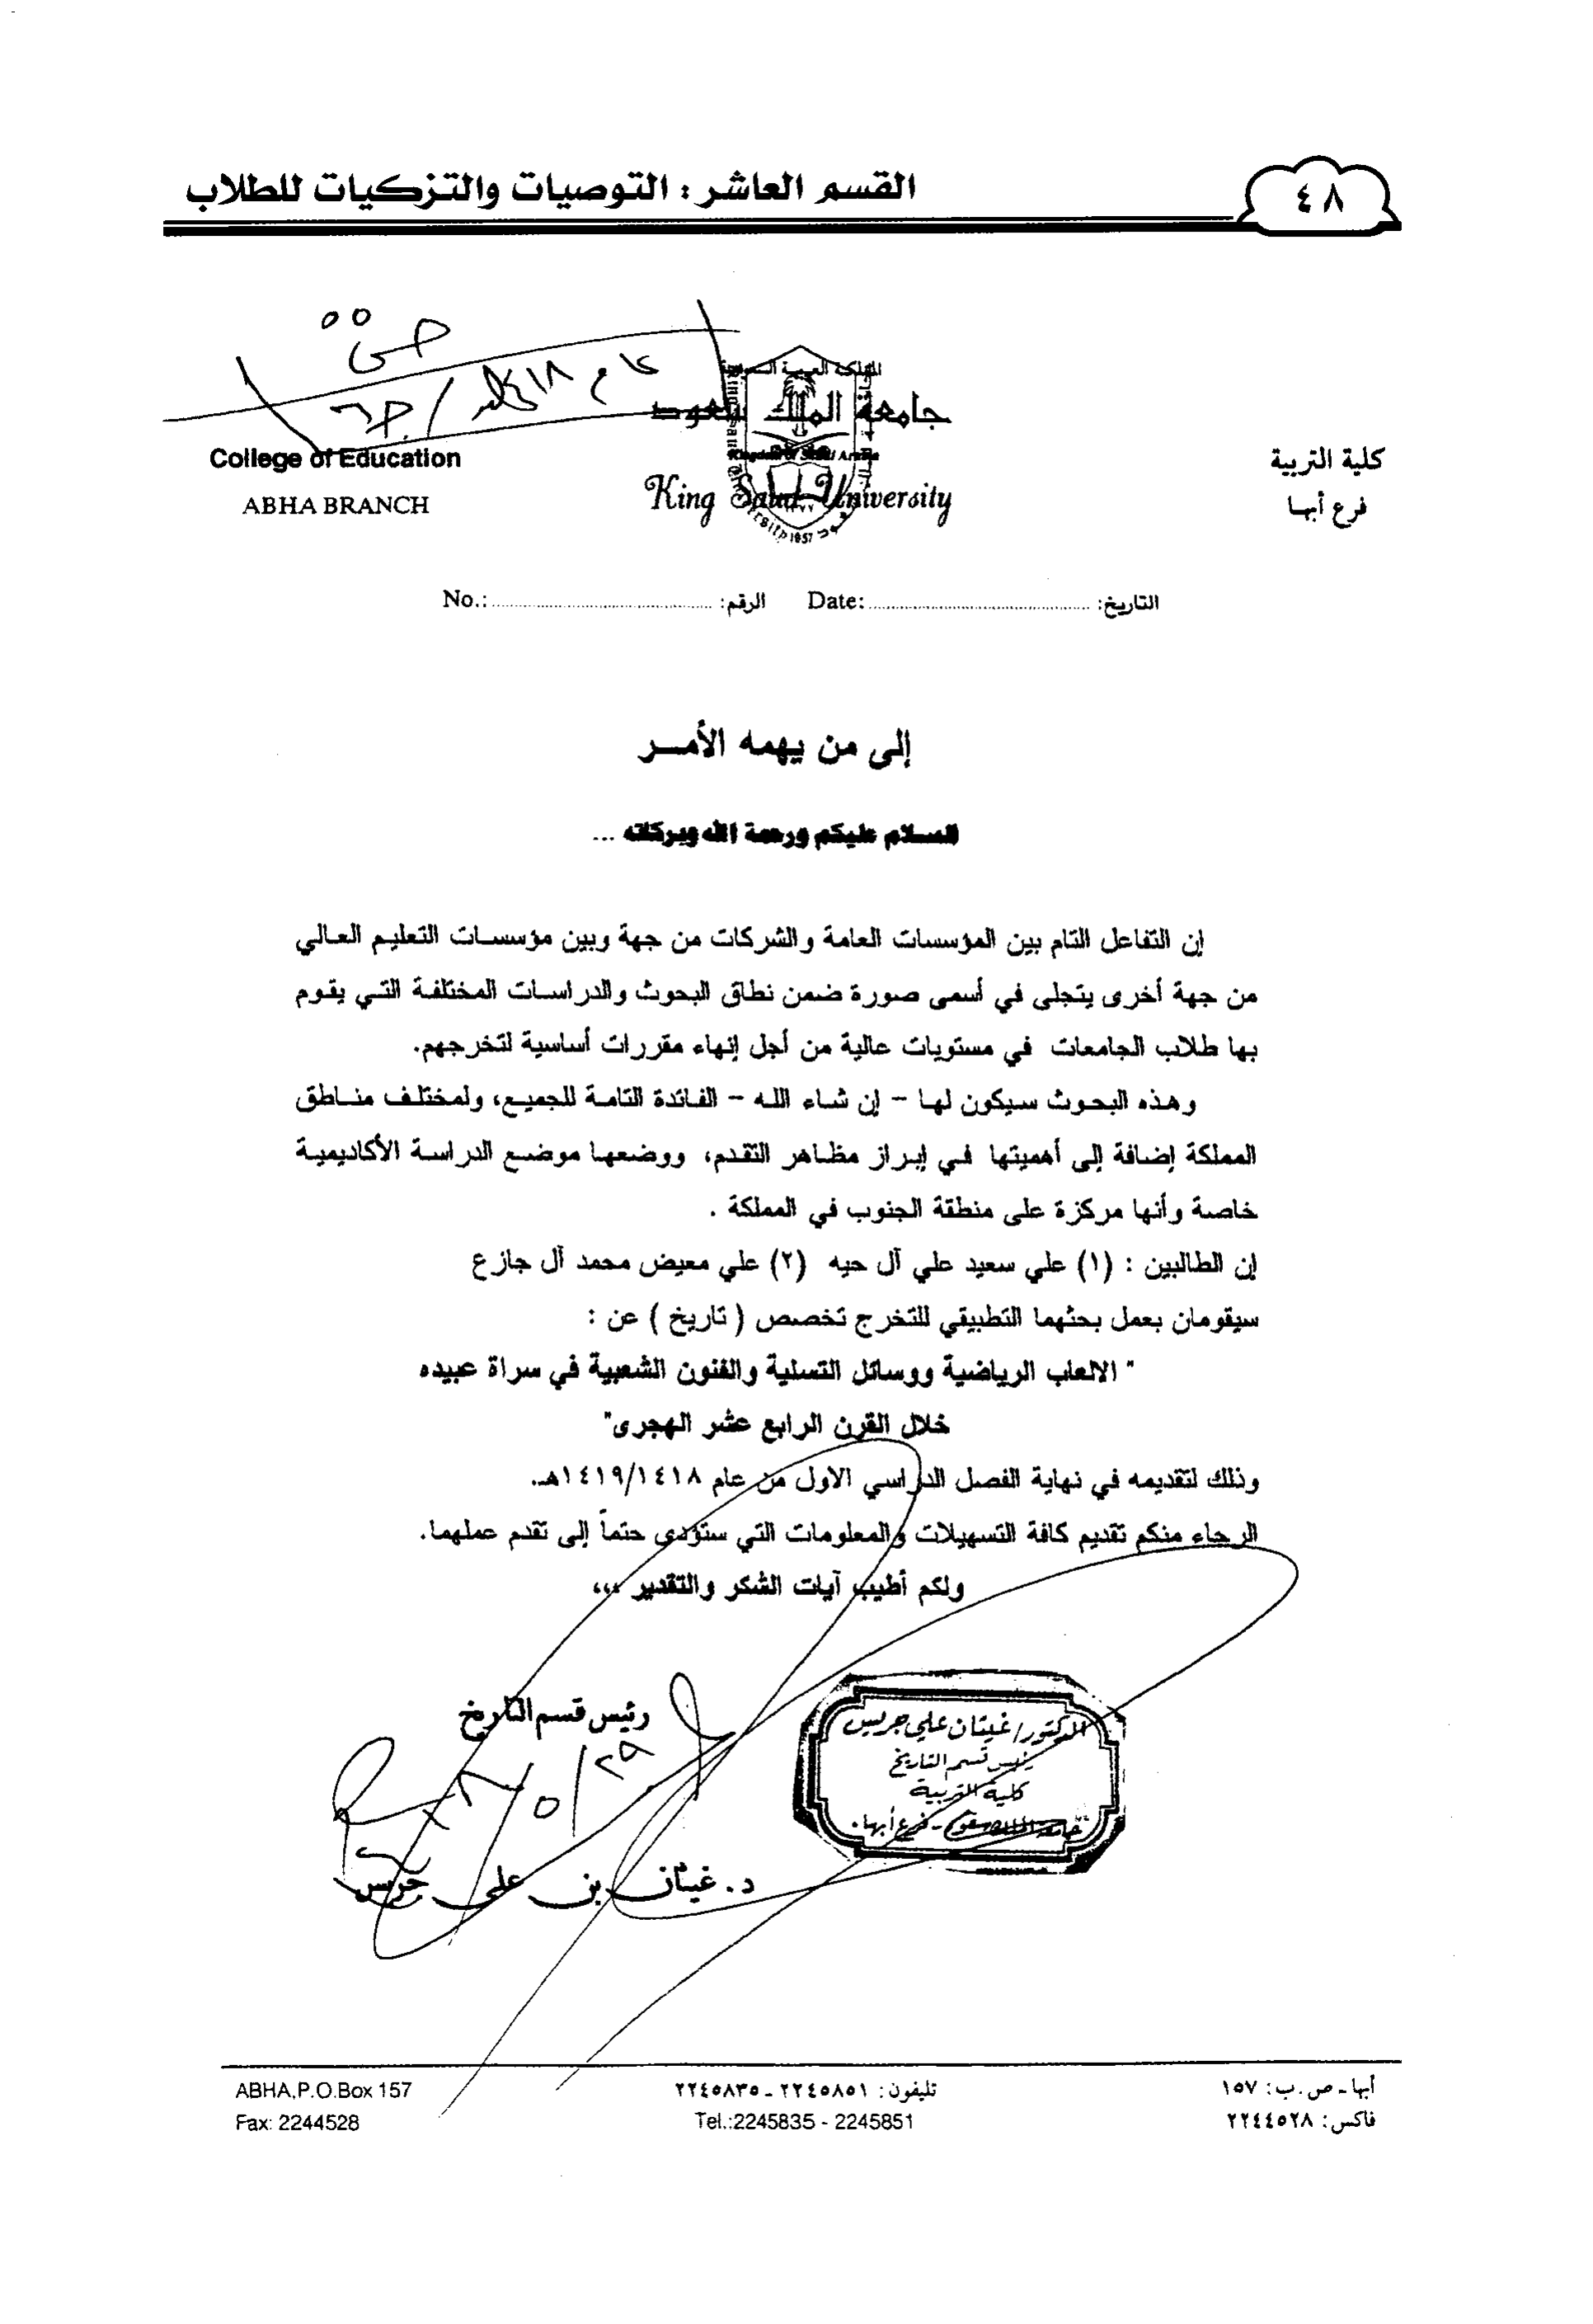 القسم العاشر : التوصيات والتزكيات للطلاب
٤٨
المملكة العربية السعودية
جامعة الملك سعود
Kingdom of Saudi Arabia
King Saud University
1957
College of Education
ABHA BRANCH
كلية التربية
فرع أبها
التاريخ: Date: الرقم: No.:
إلى من يهمه الأمـــر
السلام عليكم ورحمة الله وبركاته ...
إن التفاعل التام بين المؤسسات العامة والشركات من جهة وبين مؤسسات التعليم العالي
من جهة أخرى يتجلى في أسمى صورة ضمن نطاق البحوث والدراسات المختلفة التي يقوم
بها طلاب الجامعات في مستويات عالية من أجل إنهاء مقررات أساسية لتخرجهم.
وهذه البحوث سيكون لها - إن شاء الله - الفائدة التامة للجميع، ولمختلف مناطق
المملكة إضافة إلى أهميتها في إبراز مظاهر التقدم، ووضعها موضع الدراسة الأكاديمية
خاصة وأنها مركزة على منطقة الجنوب في المملكة .
إن الطالبين : (١) علي سعيد علي آل حيه (٢) علي معيض محمد آل جازع
سيقومان بعمل بحثهما التطبيقي للتخرج تخصص ( تاريخ ) عن :
" الالعاب الرياضية ووسائل التسلية والفنون الشعبية في سراة عبيده
خلال القرن الرابع عشر الهجرى"
وذلك لتقديمه في نهاية الفصل الدراسي الاول من عام ١٤١٩/١٤١٨هـ.
الرجاء منكم تقديم كافة التسهيلات والمعلومات التي ستؤدى حتماً إلى تقدم عملهما.
ولكم أطيب آيات الشكر والتقدير ،،،
رئيس قسم التاريخ
د. غيثان بن على جريس
الدكتور/ غيثان علي جريس
رئيس قسم التاريخ
كلية التربية
جامعة الملك سعود - فرع أبها.
أبها - ص.ب: ١٥٧
فاكس: ٢٢٤٤٥٢٨
تليفون : ٢٢٤٥٨٥١ - ٢٢٤٥٨٣٥
Tel.:2245835 - 2245851
ABHA,P.O.Box 157
Fax: 2244528